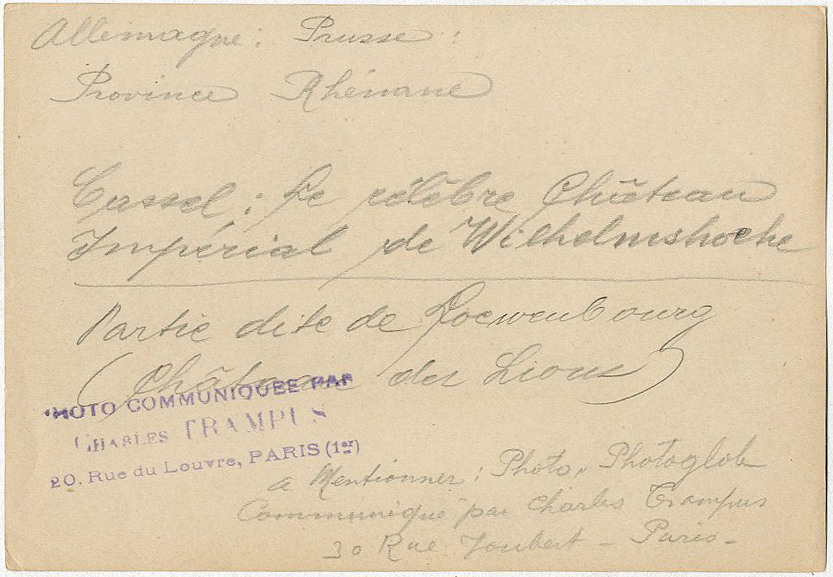 Allemagne : Prusse :
Province Rhénane
Cassel : Le célèbre Château
Impérial de Wilhelmshoehe
Partie dite de Loewenbourg
(Château des Lions)
PHOTO COMMUNIQUÉE PAR
CHARLES TRAMPUS
20, Rue du Louvre, PARIS (1er)
a Mentionner : Photo, Photoglob
Communiqué par Charles Trampus
30 Rue Joubert - Paris -